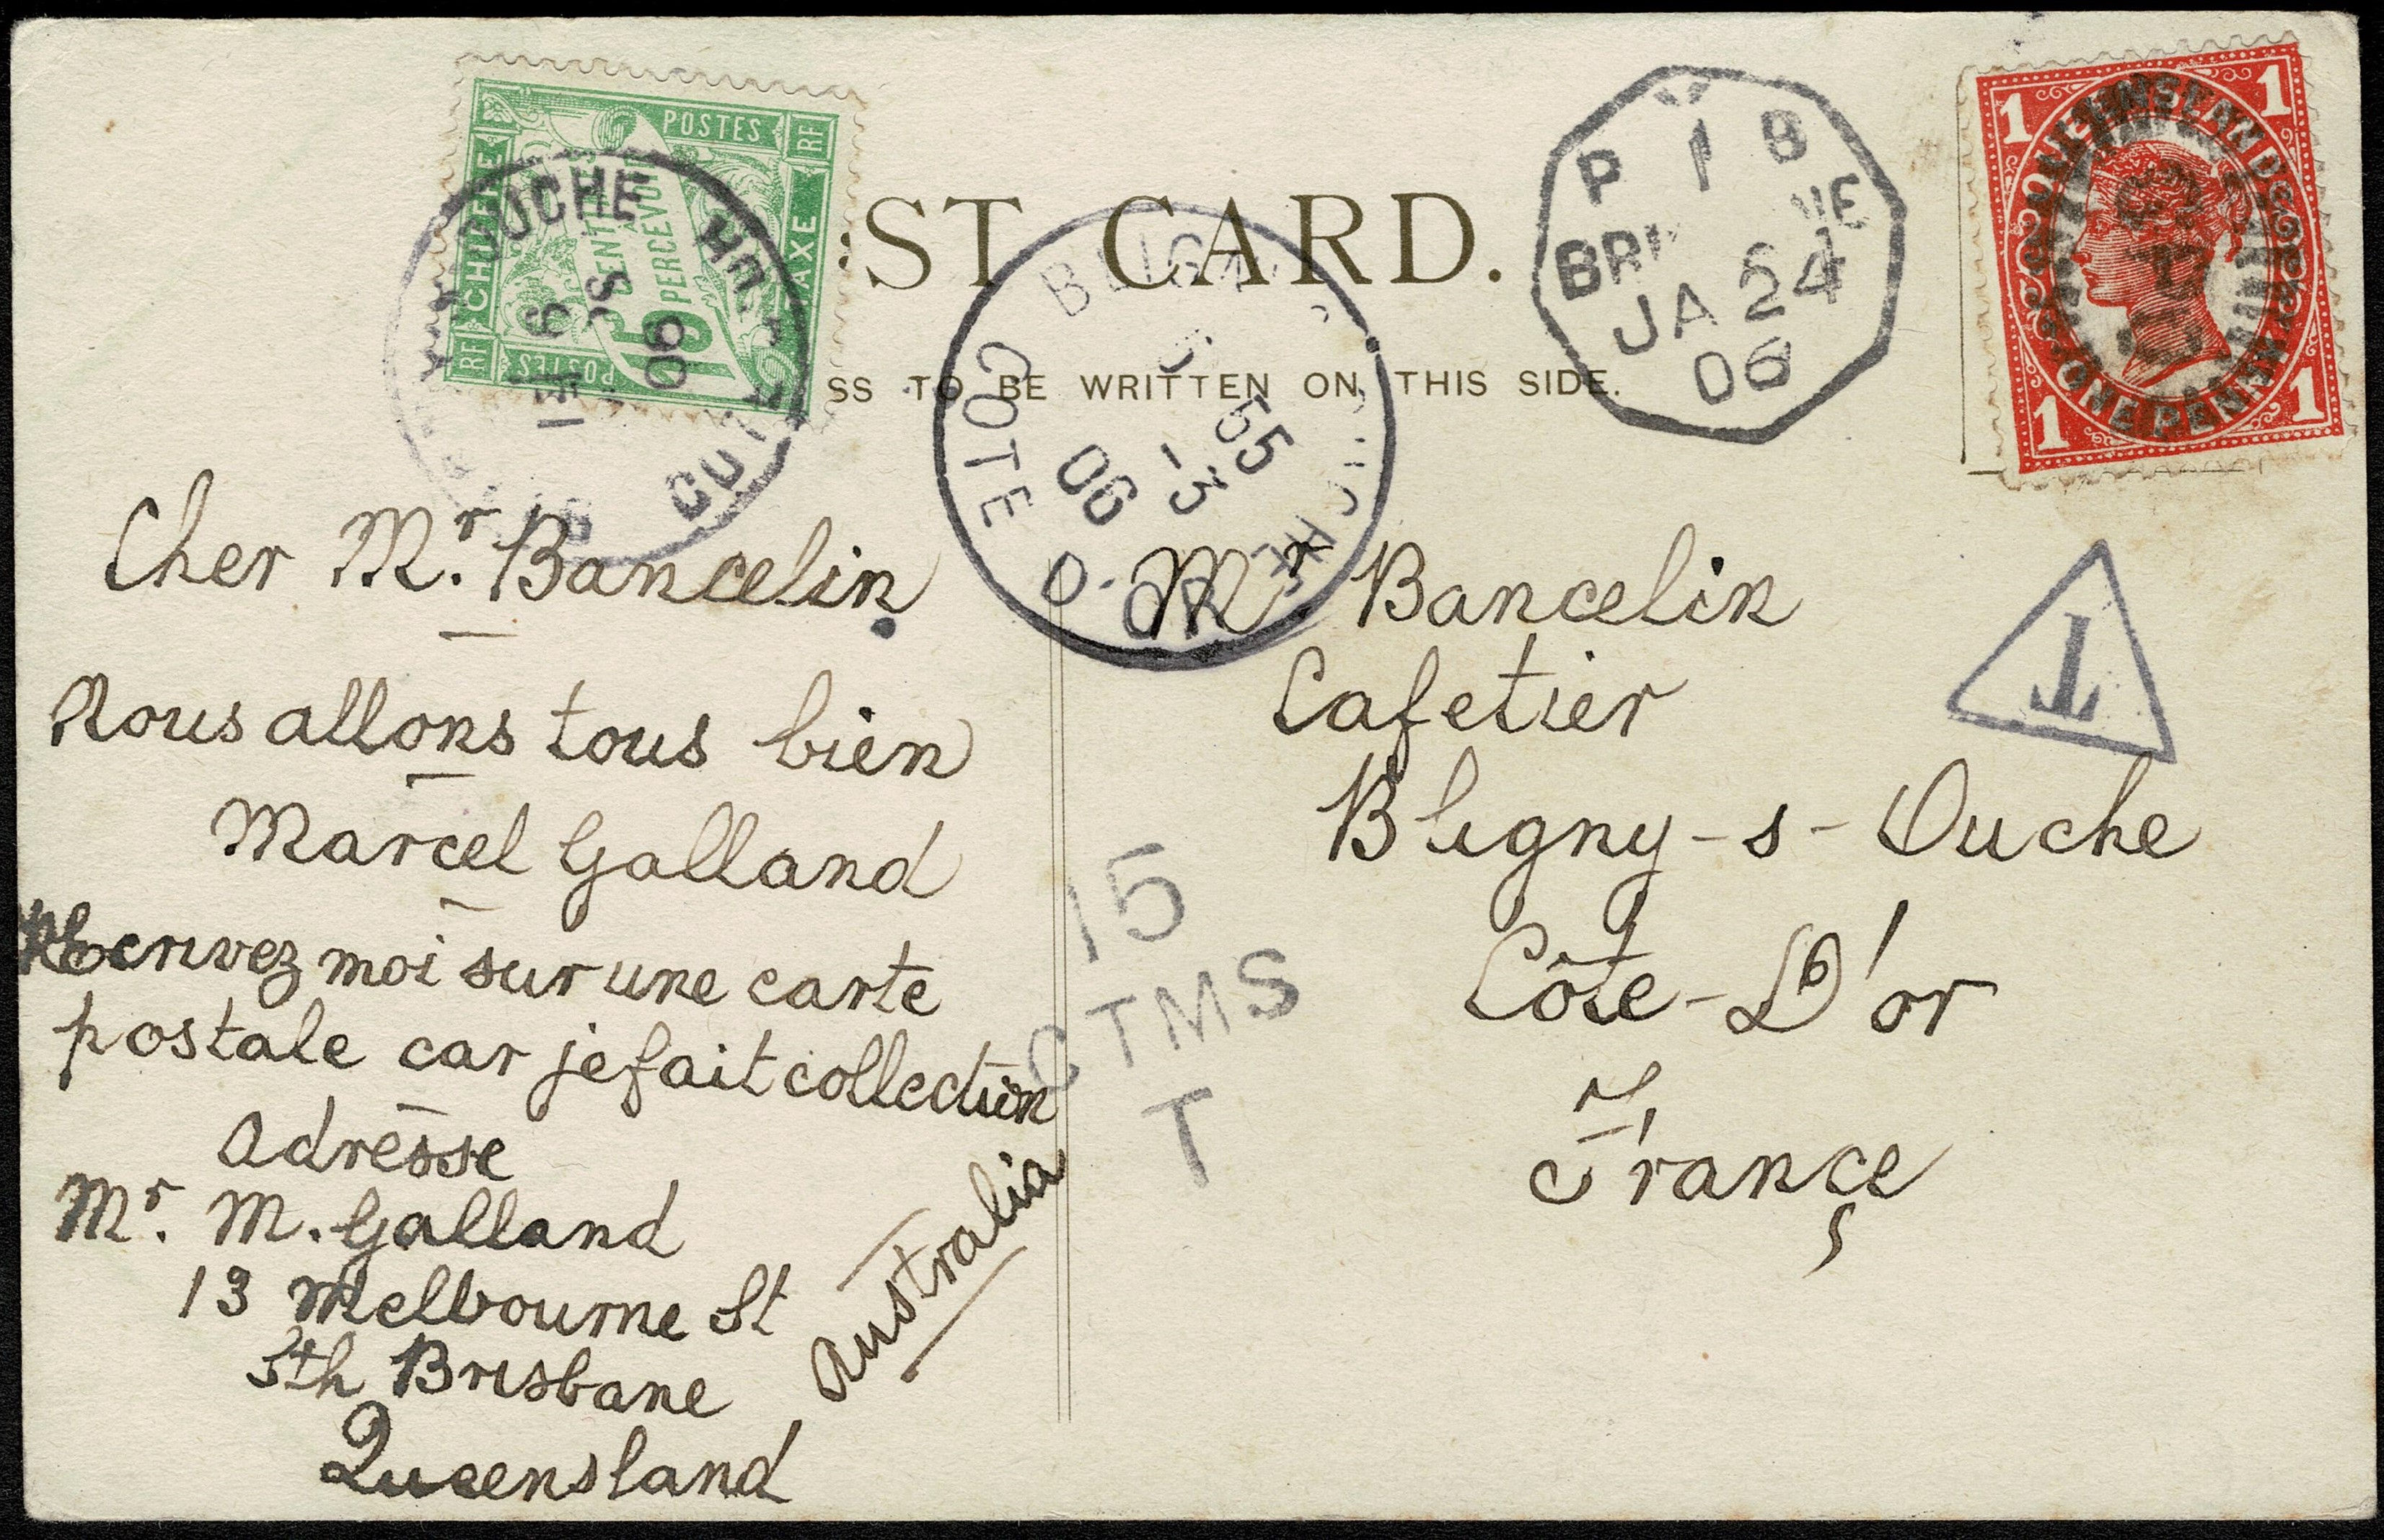 POSTES
RF
CHUFFRE
CENTIMES
À PERCEVOIR
15
TAXE
RF
POSTES
OUCHE
06
ST CARD.
SS TO BE WRITTEN ON THIS SIDE.
BLIGNY
COTE D'OR
5 55
-3
06
P 1 B
JA 24
06
QUEENSLAND
ONE PENNY
1 1
1 1
T
Cher Mr. Bancelin
Nous allons tous bien
Marcel Galland
Ecrivez moi sur une carte
postale car je fait collection
adresse
Mr. M. Galland
13 Melbourne St
Sth Brisbane
Queensland
Australia
Mr Bancelin
Cafetier
Bligny-s-Ouche
Côte-D'or
France
15
CTMS
T